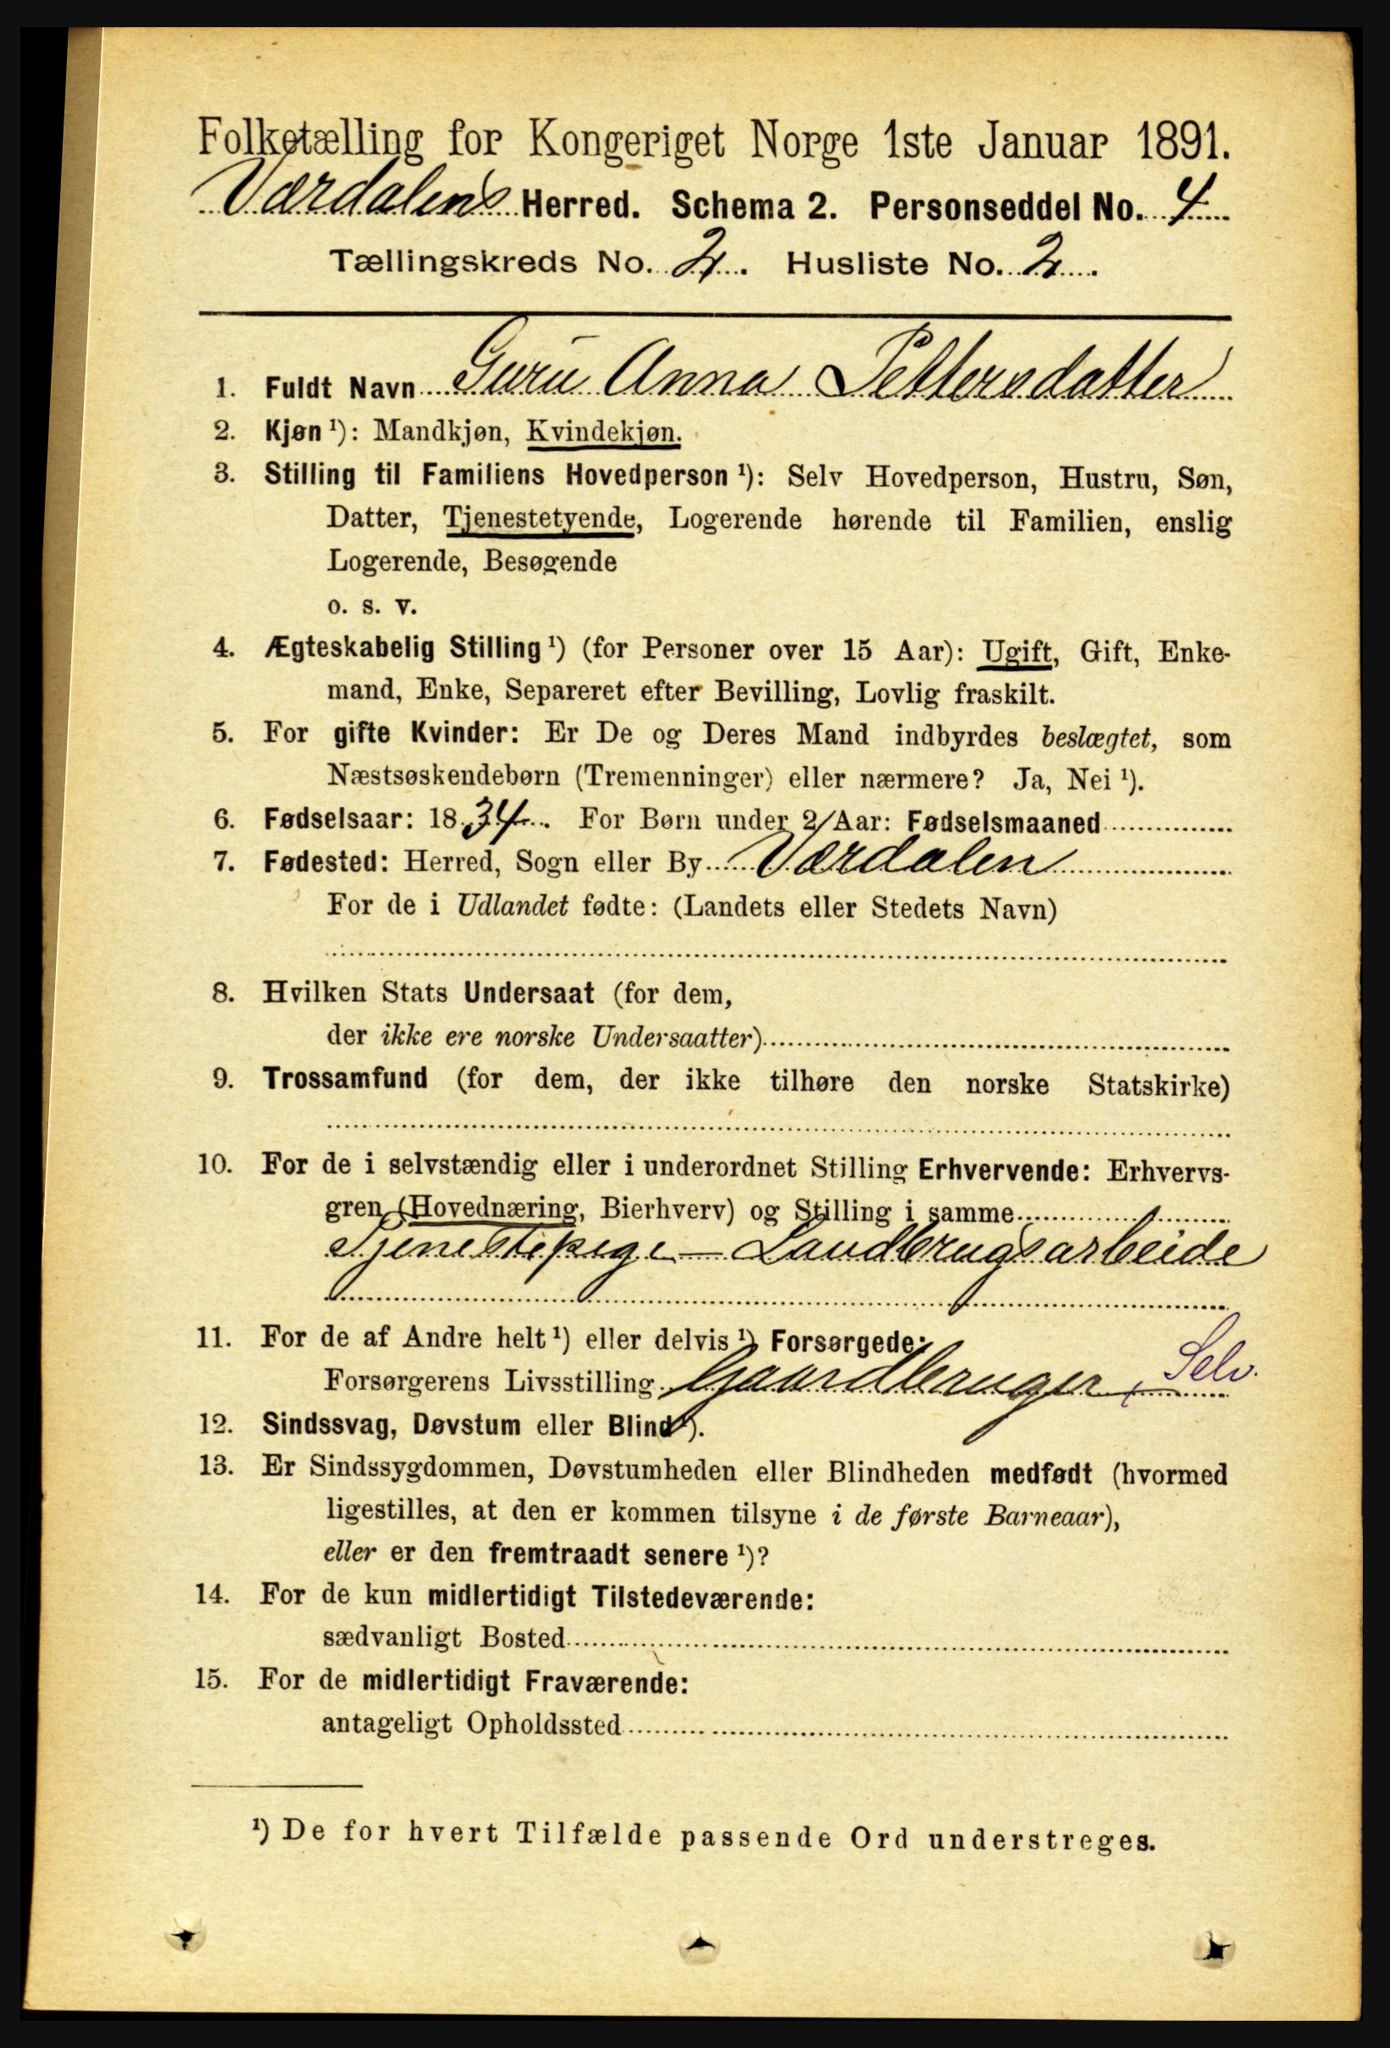 Folketælling for Kongeriget Norge 1ste Januar 1891.
Værdalens Herred. Schema 2. Personseddel No. 4
Tællingskreds No. 2. Husliste No. 2.
1. Fuldt Navn Guru Anna Pettersdatter
2. Kjøn ¹): Mandkjøn, Kvindekjøn.
3. Stilling til Familiens Hovedperson ¹): Selv Hovedperson, Hustru, Søn,
Datter, Tjenestetyende, Logerende hørende til Familien, enslig
Logerende, Besøgende
o. s. v.
4. Ægteskabelig Stilling ¹) (for Personer over 15 Aar): Ugift, Gift, Enke-
mand, Enke, Separeret efter Bevilling, Lovlig fraskilt.
5. For gifte Kvinder: Er De og Deres Mand indbyrdes beslægtet, som
Næstsøskendebørn (Tremenninger) eller nærmere? Ja, Nei ¹).
6. Fødselsaar: 1834. For Børn under 2 Aar: Fødselsmaaned
7. Fødested: Herred, Sogn eller By Værdalen
For de i Udlandet fødte: (Landets eller Stedets Navn)
8. Hvilken Stats Undersaat (for dem,
der ikke ere norske Undersaatter)
9. Trossamfund (for dem, der ikke tilhøre den norske Statskirke)
10. For de i selvstændig eller i underordnet Stilling Erhvervende: Erhvervs-
gren (Hovednæring, Bierhverv) og Stilling i samme
Tjenestepige — Landbrugsarbeide
11. For de af Andre helt ¹) eller delvis ¹) Forsørgede:
Forsørgerens Livsstilling Gaardbruger, Selv.
12. Sindssvag, Døvstum eller Blind ¹).
13. Er Sindssygdommen, Døvstumheden eller Blindheden medfødt (hvormed
ligestilles, at den er kommen tilsyne i de første Barneaar),
eller er den fremtraadt senere ¹)?
14. For de kun midlertidigt Tilstedeværende:
sædvanligt Bosted
15. For de midlertidigt Fraværende:
antageligt Opholdssted
¹) De for hvert Tilfælde passende Ord understreges.